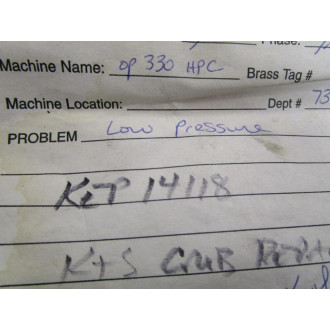 Phase:
Machine Name: OP 330 HPC Brass Tag #
Machine Location: Dept # 73
PROBLEM Low Pressure
14118
K+S